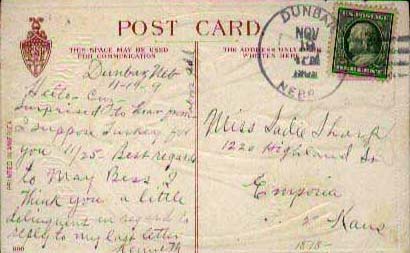 POST CARD
THIS SPACE MAY BE USED
FOR COMMUNICATION
THE ADDRESS ONLY
WRITTEN HERE
DUNBAR
NOV
NEBR.
U.S. POSTAGE
PRINTED IN AMERICA
Dunbar Neb
11-19-9
Hello
Surprised to hear from
I suppose turkey for
you 11/25 - Best regards
to May Bess. I
Think you a little
delinquent in regard to
reply to my last letter
Kenneth
Miss Sadie Sharp
1220 Highland
Emporia
Kans